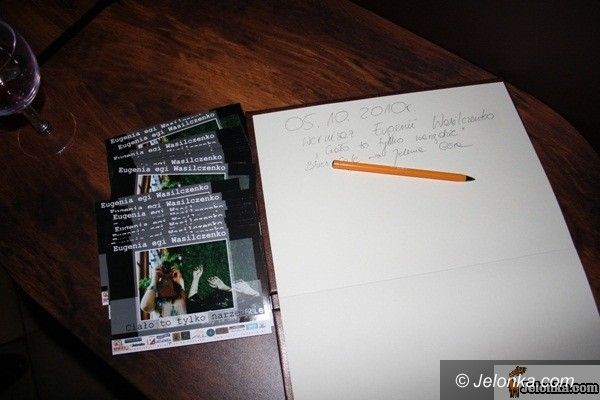 Eugenia egi Wasilczenko
Eugenia egi Wasilczenko
Eugenia egi Wasilczenko
Eugenia egi Wasilczenko
Eugenia egi Wasilczenko
Eugenia egi Wasilczenko
Eugenia egi Wasilczenko
Ciało to tylko narzędzie
05.10.2010r.
wernisaż Eugenii Wasilczenko
"Ciało to tylko narzędzie"
Jelenia Góra
© Jelonka.com
Jelonka.com